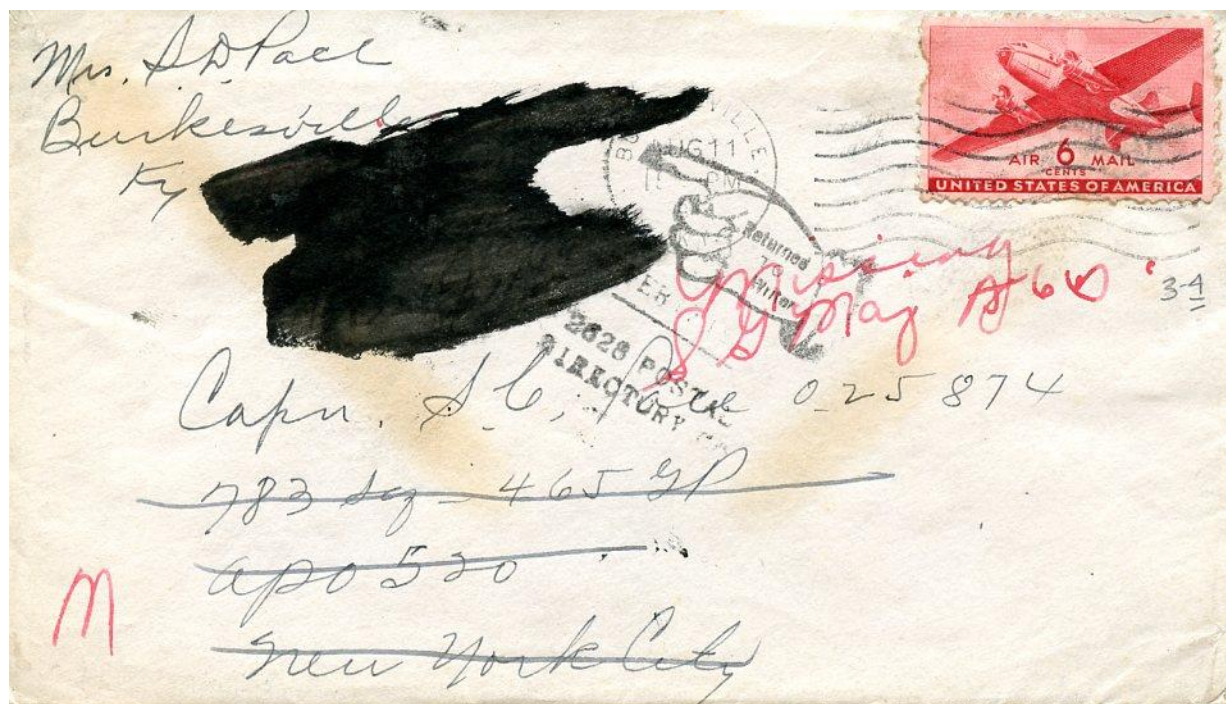 Mrs. S. D. Pace
Burkesville
Ky
VILLE
AUG 11
PM
AIR 6 MAIL
CENTS
UNITED STATES OF AMERICA
Returned
To
Writer
Missing
Maj
3-4
2628 POSTAL
DIRECTORY
Capn. S. C. Pace 025874
783 Sq - 465 GP
APO 520
New York City
M